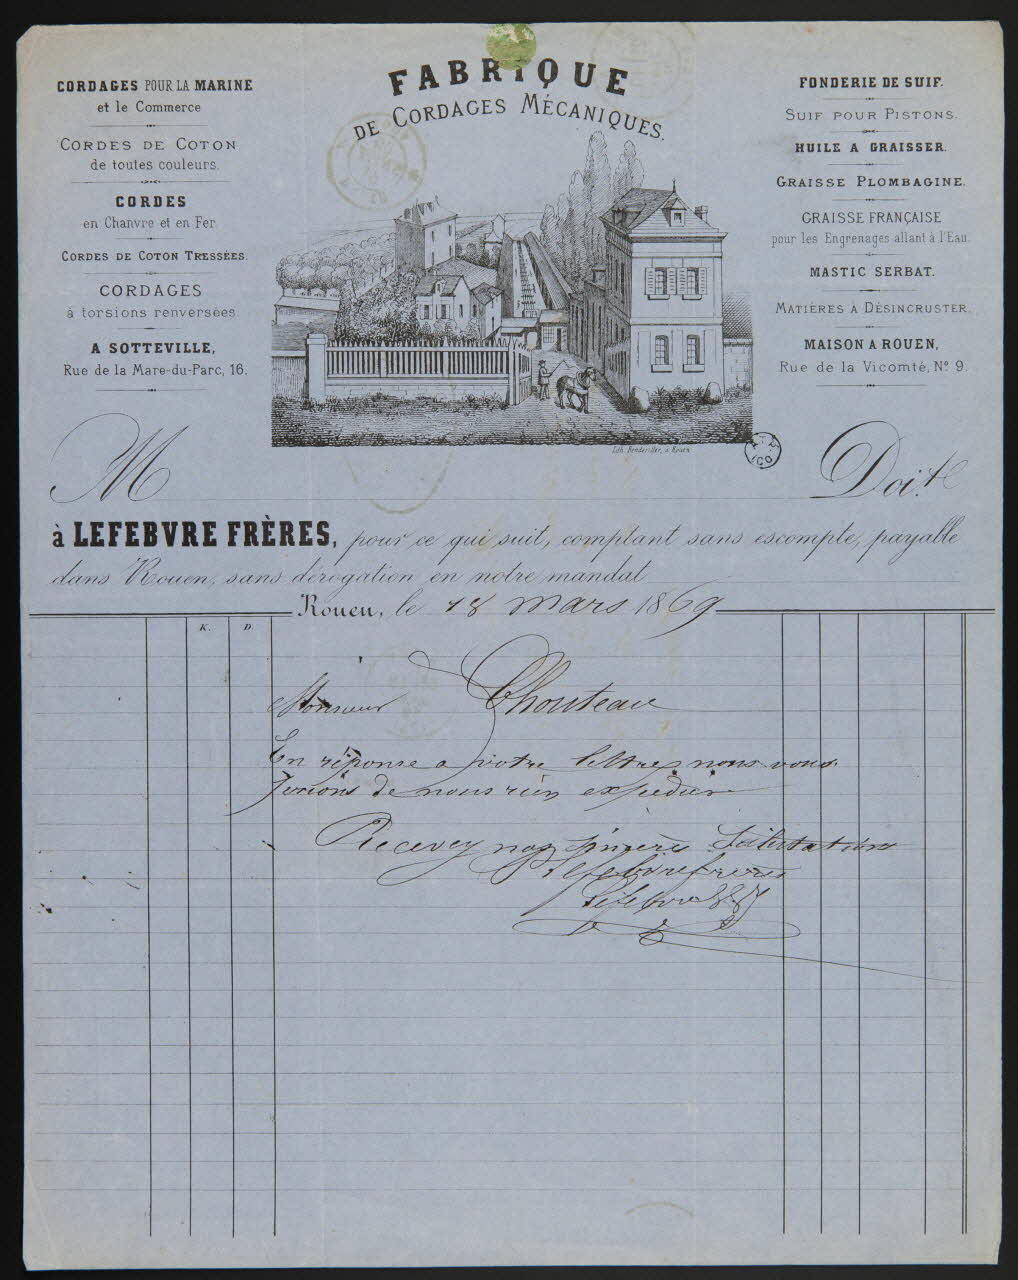 FABRIQUE
DE CORDAGES MÉCANIQUES.
CORDAGES POUR LA MARINE
et le Commerce
CORDES DE COTON
de toutes couleurs.
CORDES
en Chanvre et en Fer
CORDES DE COTON TRESSÉES.
CORDAGES
à torsions renversées
A SOTTEVILLE,
Rue de la Mare-du-Parc, 16.
FONDERIE DE SUIF.
SUIF POUR PISTONS.
HUILE A GRAISSER.
GRAISSE PLOMBAGINE.
GRAISSE FRANÇAISE
pour les Engrenages allant à l'Eau.
MASTIC SERBAT.
MATIÈRES À DÉSINCRUSTER.
MAISON A ROUEN,
Rue de la Vicomté, Nº 9.
Lith. à Rouen
M Doi.t
à LEFEBVRE FRÈRES, pour ce qui suit, comptant sans escompte, payable
dans Rouen, sans dérogation en notre mandat
Rouen, le 18 mars 1869
K. D.
Monsieur Chouteau
En réponse a votre lettre nous vous
de nous rien expedier
Recevez nos sincères Salutations
Lefebvre freres